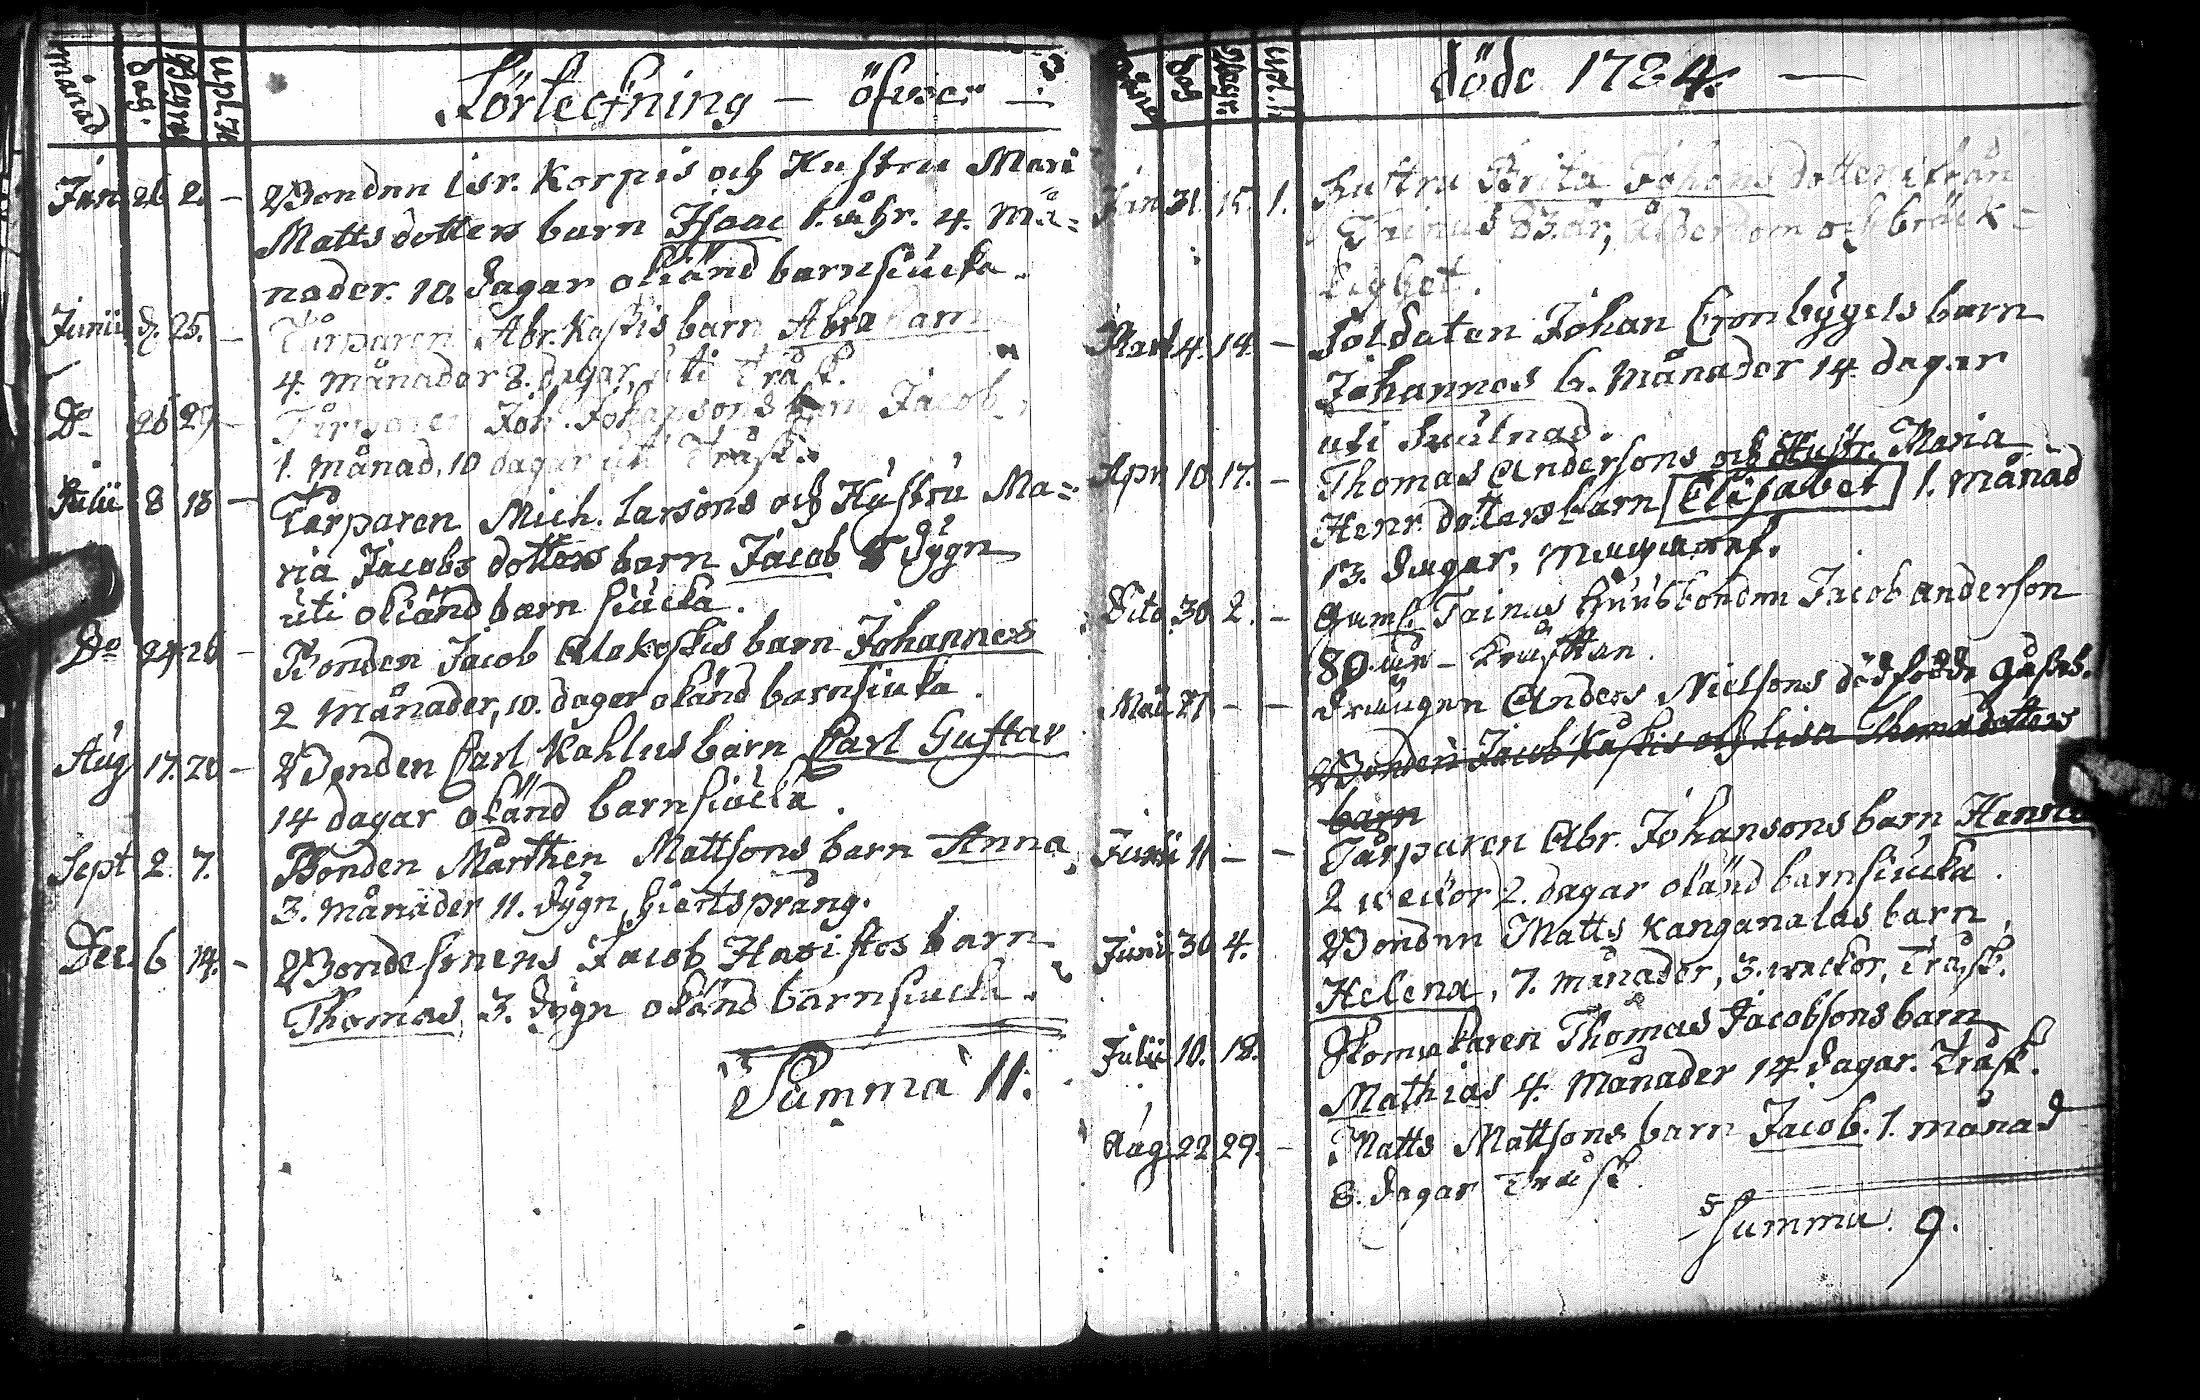 månad dag. begra upl.k
Förteckning — öfwer —
Jan 26 2. — Bonden Isr. Korpis och Hustru Mari
Matts dotters barn Isaac 1. åhr. 4. Må=
nader. 10. dagar okiänd barnsiucka.
Junii 25. — Torparen Abr. Koskis barn Abraham
4. månader 8. dagar, uti Träsk.
Do 26 29 — Torparen Joh. Johansons barn Jacob
1. månad, 10 dagar uti Träsk.
Julii 8 18 — Torparen Mich. Larsons och Hustru Ma=
ria Jacobs dotters barn Jacob dygn
uti okiänd barn siucka.
Do 24 26 — Bonden Jacob Alakoskis barn Johannes
2 Månader, 10. dagar okänd barnsiucka.
Aug 17. 20 — Bonden Carl Kahlus barn Carl Gustav
14 dagar okänd barnsiucka.
Sept 2. 7. Bonden Mårthen Mattsons barn Anna
3. månader 11. dygn, hiertsprång.
Dec. 6 14. — Bondesonens Jacob Havistos barn
Thomas, 3. dygn okänd barnsiucka.
Summa 11.
döde 1784. —
Jan 31. 15. 1. Hustru Brita Johans dotter ifrån
Tainus 83. år, ålderdom och bräck=
lighet.
Mart 4. 14. — Soldaten Johan Cronbygels barn
Johannes 6. Månader 14. dagar
uti
Apr. 10 17. — Thomas Andersons och Hustr. Maria
Henr. dotters barn Elisabet 1. månad
13. dagar,
Dito 30 2. — Gaml. Tainus Husbonden Jacob Anderson
80. år —
Maii 21 — — Drängen Anders Nielsons dödfödde
Bonden Jacob Kaskis och Lisa Thomædotters
barn
Junii 11 — — Torparen Abr. Johansons barn
2 weckor 2. dagar okänd barnsiucka.
Junii 30 4. Bonden Matts Kanganalas barn
Helena, 7. månader, 3. weckor, Träsk.
Julii 10. 18. Skomakaren Thomas Jacobsons barn
Mathias 4. Månader 14 dagar. Träsk.
Aug 22 29. — Matts Mattsons barn Jacob. 1. månad
dagar Träsk.
Summa 9.